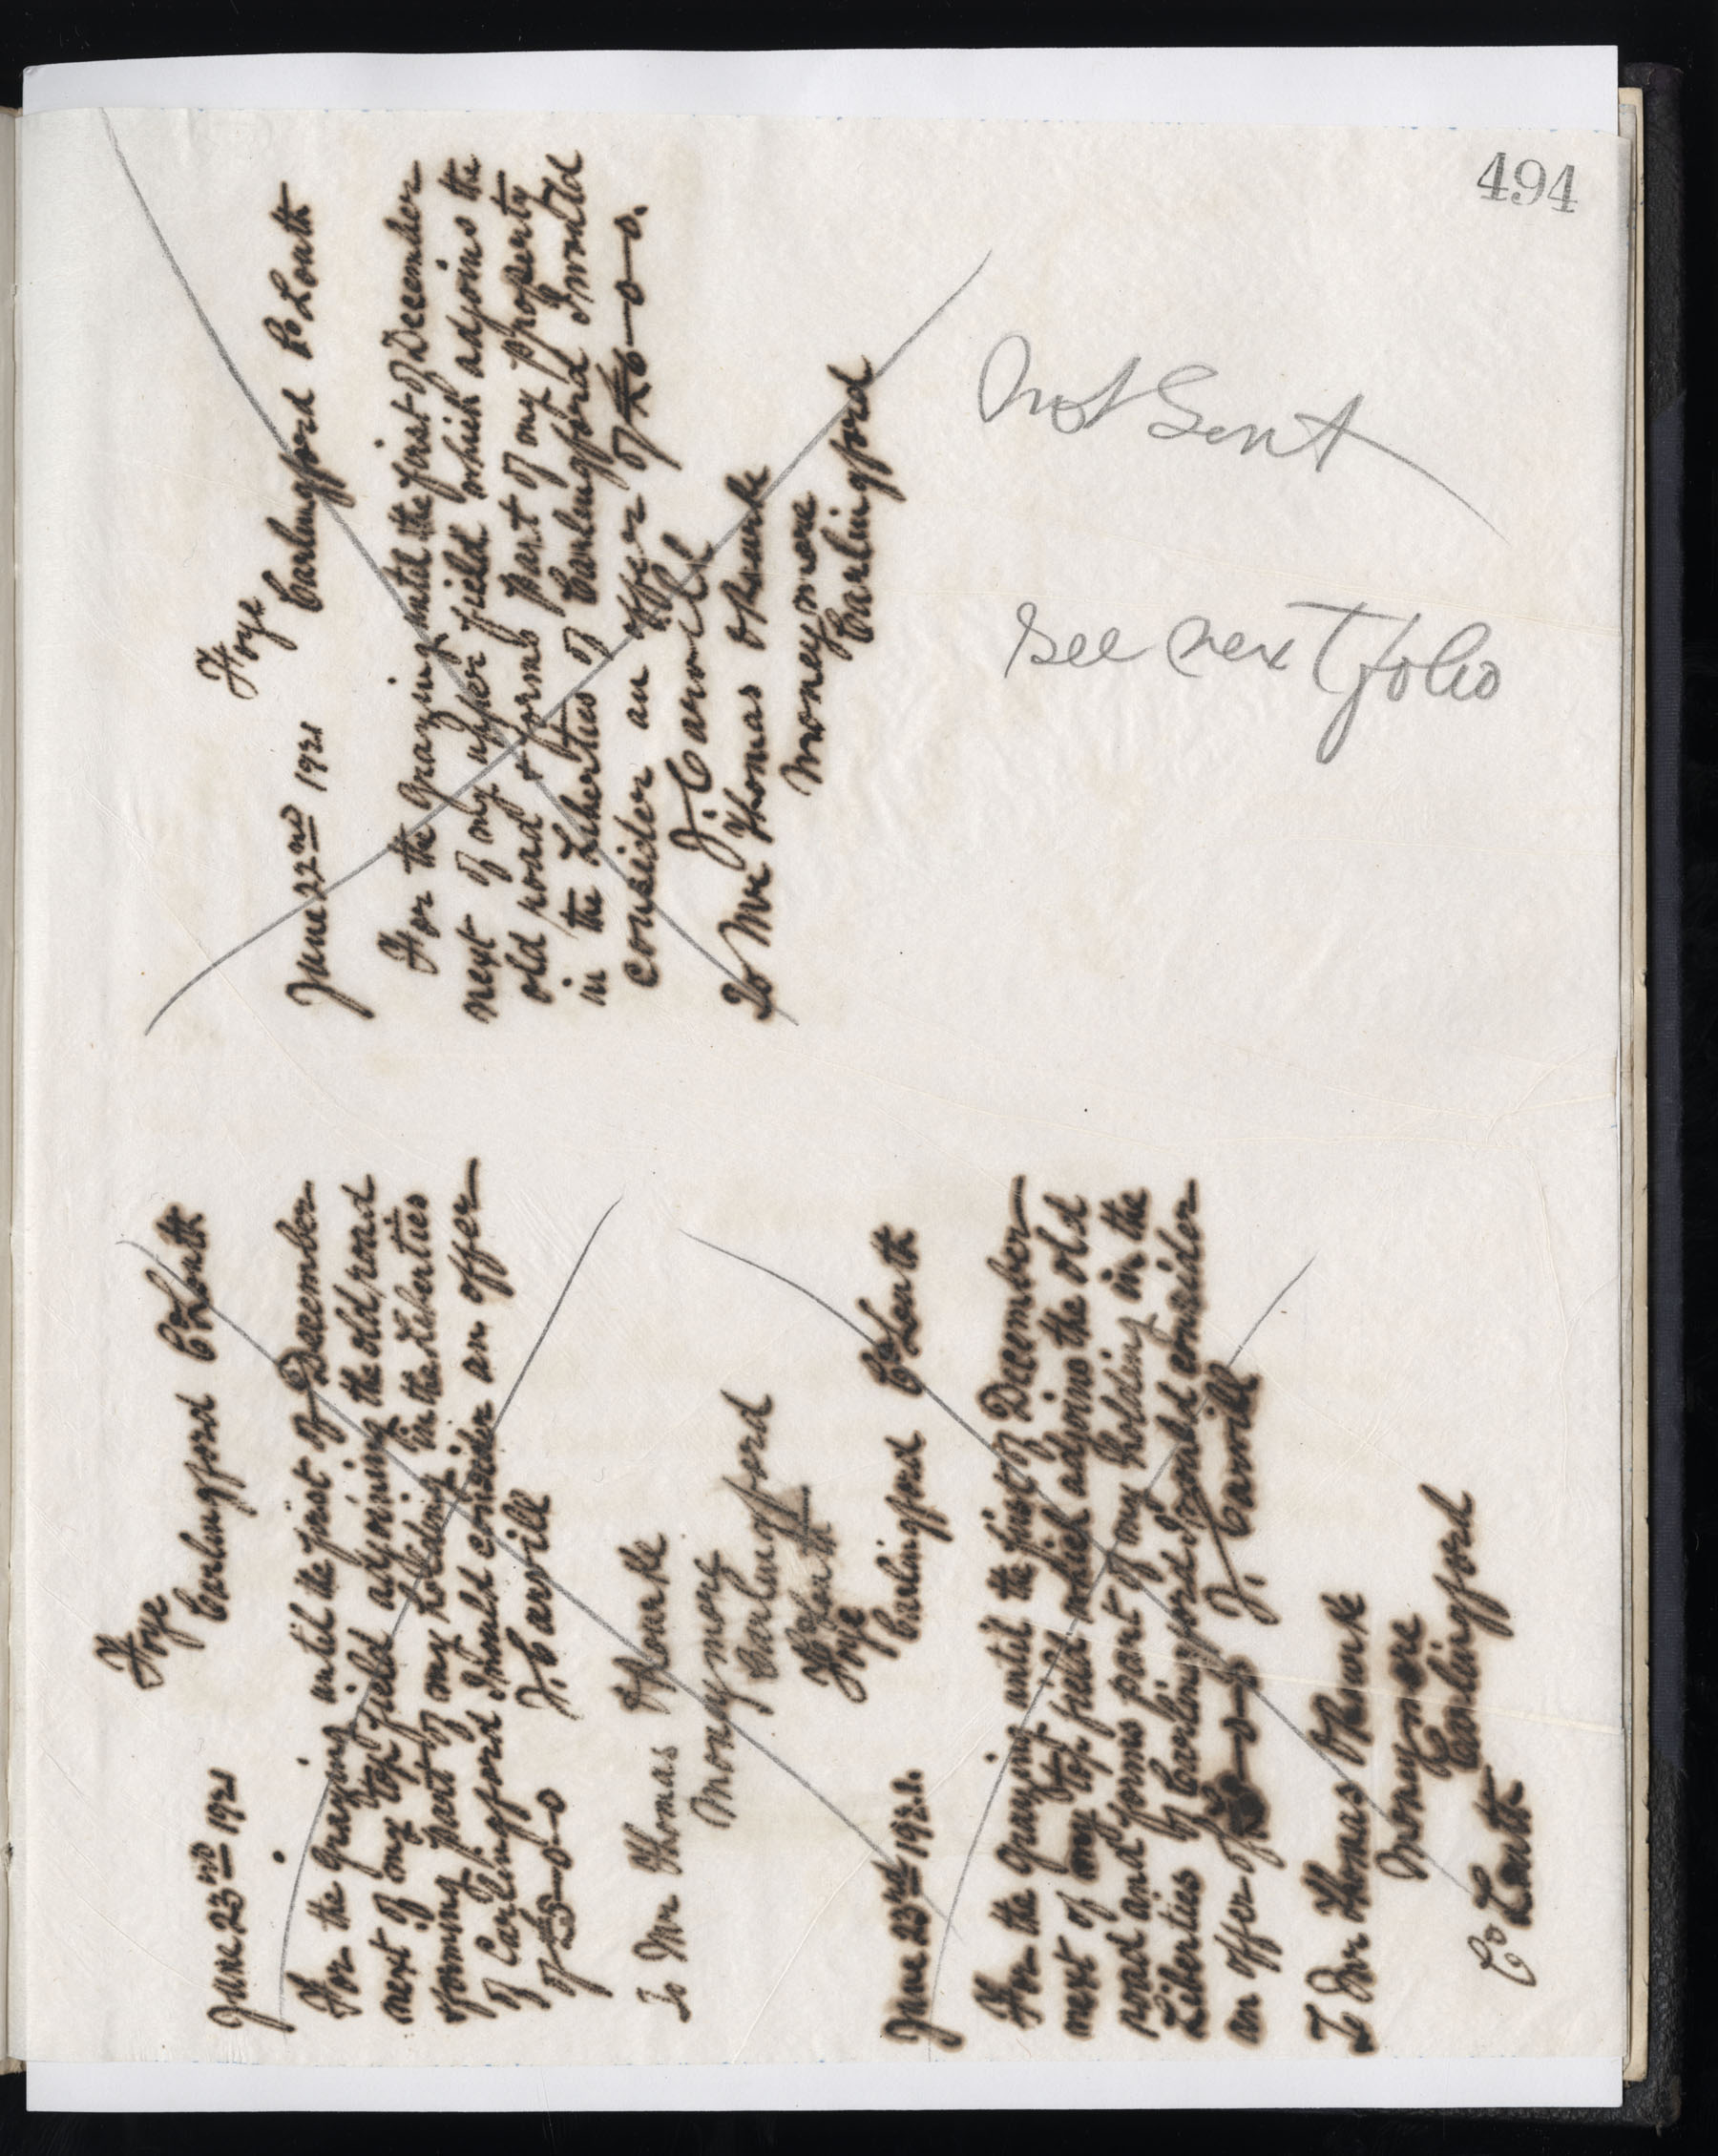 494
Foye
Carlingford Co Louth
June 22nd 1921
For the grazing until the first of December
next of my upper field which adjoins the
old road & forms part of my property
in the Liberties of Carlingford I would
consider an offer of
J. Carvill
To Mr Thomas ORourke
Moneymore
Carlingford
Not Sent
See next folio
Foye
Carlingford Co Louth
June 23rd 1921
For the grazing until the first of December
next of my top field adjoining the old road
forming part of my holding in the Liberties
of Carlingford I would consider an offer
of
J. Carvill
To Mr Thomas ORourke
Moneymore
Carlingford
Co Louth
Foye
Carlingford Co Louth
June 23rd 1921.
For the grazing until the first of December
next of my top field which adjoins the old
road and forms part of my holding in the
Liberties of Carlingford I would consider
an offer of
J. Carvill
To Mr Thomas ORourke
Moneymore
Carlingford
Co Louth